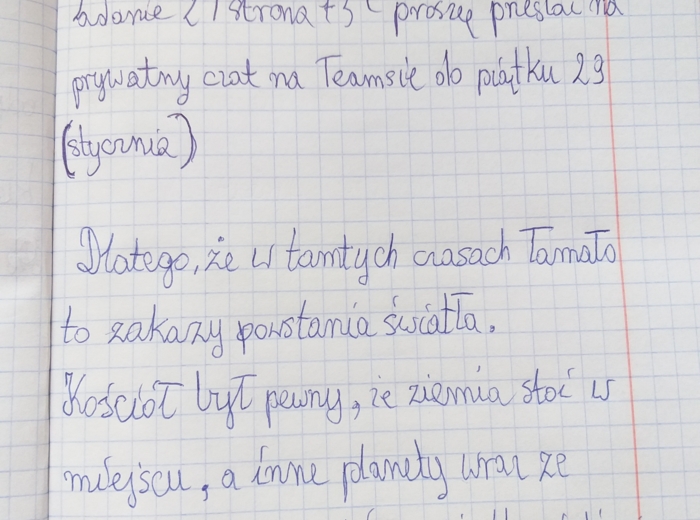 zadanie 2 / strona 73 proszę przesłać na
prywatny czat na Teamsie do piątku 29
(stycznia)
Dlatego, że w tamtych czasach łamało
to zakazy powstania światła.
Kościół był pewny, że ziemia stoi w
miejscu, a inne planety wraz ze